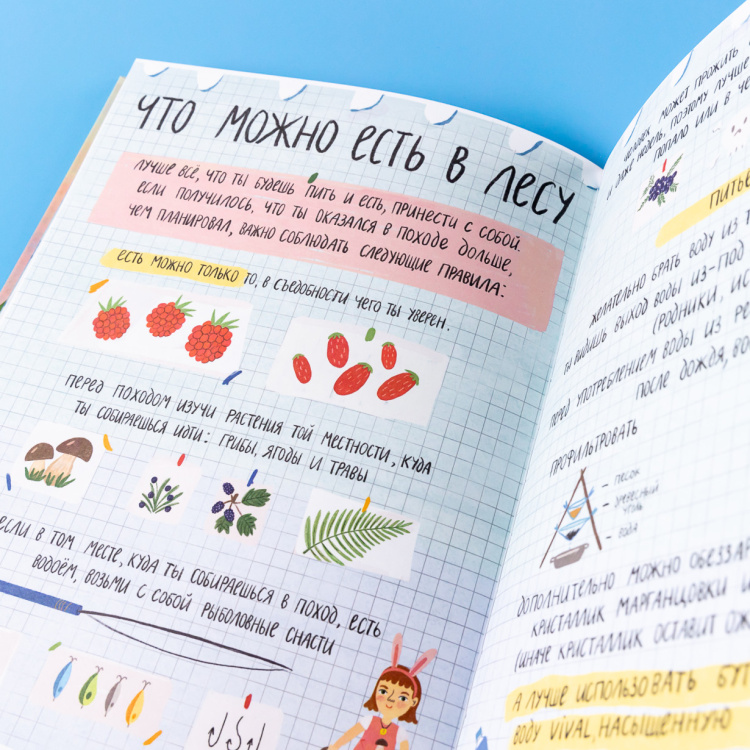 ЧТО МОЖНО ЕСТЬ В ЛЕСУ
ЛУЧШЕ ВСЁ, ЧТО ТЫ БУДЕШЬ ПИТЬ И ЕСТЬ, ПРИНЕСТИ С СОБОЙ.
ЕСЛИ ПОЛУЧИЛОСЬ, ЧТО ТЫ ОКАЗАЛСЯ В ПОХОДЕ ДОЛЬШЕ,
ЧЕМ ПЛАНИРОВАЛ, ВАЖНО СОБЛЮДАТЬ СЛЕДУЮЩИЕ ПРАВИЛА:
ЕСТЬ МОЖНО ТОЛЬКО ТО, В СЪЕДОБНОСТИ ЧЕГО ТЫ УВЕРЕН.
ПЕРЕД ПОХОДОМ ИЗУЧИ РАСТЕНИЯ ТОЙ МЕСТНОСТИ, КУДА
ТЫ СОБИРАЕШЬСЯ ИДТИ: ГРИБЫ, ЯГОДЫ И ТРАВЫ
ЕСЛИ В ТОМ МЕСТЕ, КУДА ТЫ СОБИРАЕШЬСЯ В ПОХОД, ЕСТЬ
ВОДОЁМ, ВОЗЬМИ С СОБОЙ РЫБОЛОВНЫЕ СНАСТИ
ЧЕЛОВЕК МОЖЕТ ПРОЖИТЬ
И ДАЖЕ НЕДЕЛЬ, ПОЭТОМУ ЛУЧШЕ
ПОПАЛО ИЛИ В ЧЕ
ПИТЬЕ
ЖЕЛАТЕЛЬНО БРАТЬ ВОДУ ИЗ
ТЫ ВИДИШЬ ВЫХОД ВОДЫ ИЗ-ПОД
(РОДНИКИ,
ПЕРЕД УПОТРЕБЛЕНИЕМ ВОДЫ ИЗ РЕ
ПОСЛЕ ДОЖДЯ, ВО
ПРОФИЛЬТРОВАТЬ
ПЕСОК
УГОЛЬ
ВОДА
ДОПОЛНИТЕЛЬНО МОЖНО ОБЕЗЗАР
КРИСТАЛЛИК МАРГАНЦОВКИ И
(ИНАЧЕ КРИСТАЛЛИК ОСТАВИТ ОЖ
А ЛУЧШЕ ИСПОЛЬЗОВАТЬ БУТ
ВОДУ VIVAL, НАСЫЩЕННУЮ